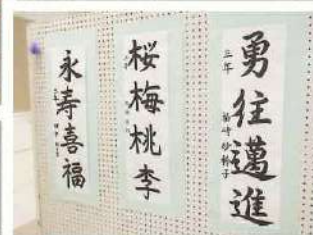 勇往邁進
三年
桜梅桃李
永寿喜福